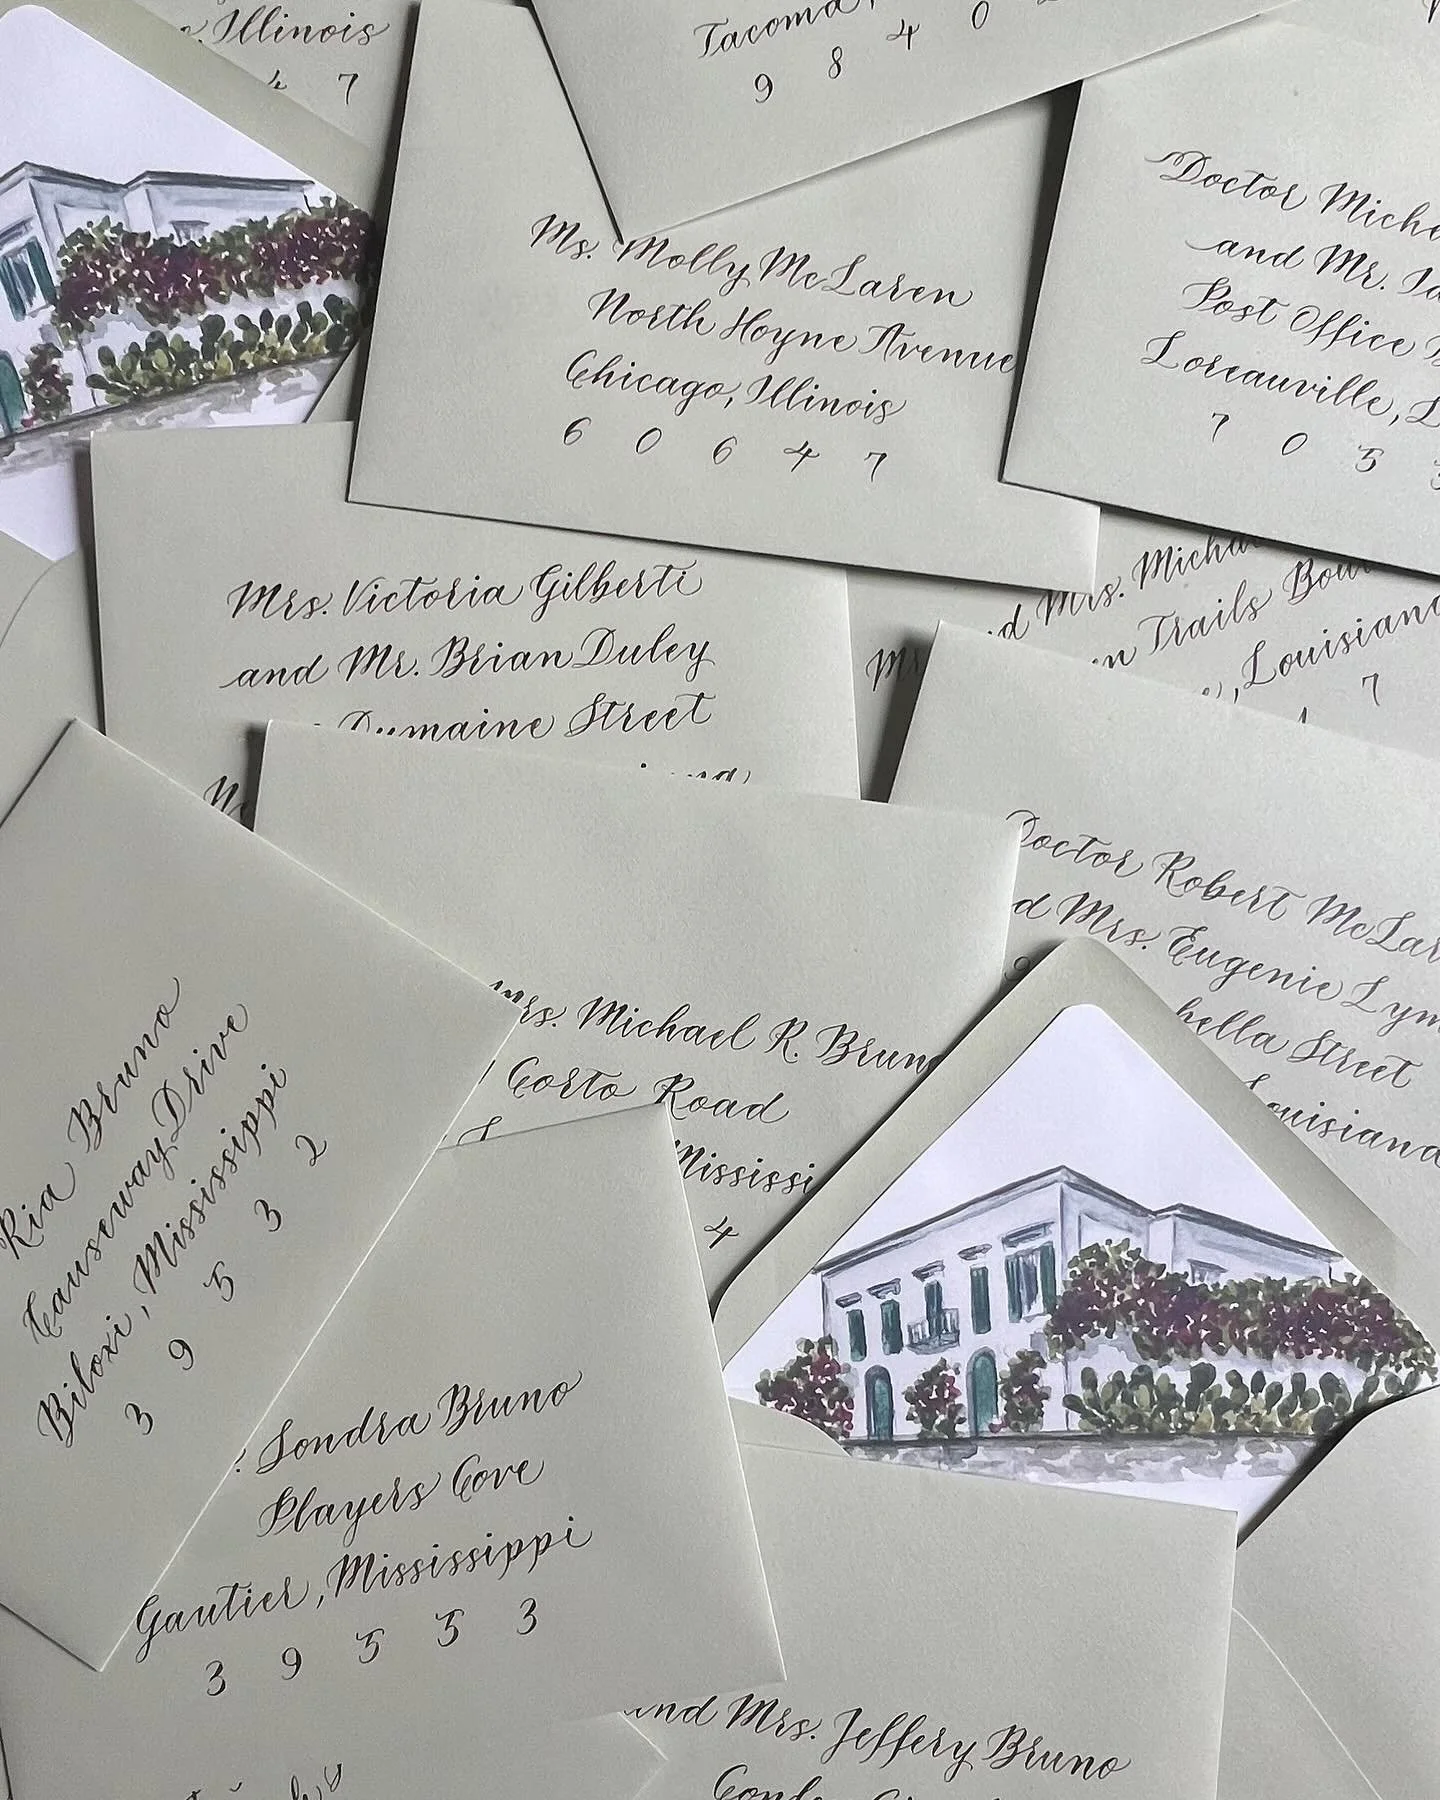 Illinois
7
Tacoma,
9 8 4 0
Ms. Molly McLaren
North Hoyne Avenue
Chicago, Illinois
6 0 6 4 7
Doctor
and Mr.
Post Office
Loreauville,
7 0 5
Mrs. Victoria Gilberti
and Mr. Brian Duley
Dumaine Street
Mrs.
Trails
Louisiana
7
Doctor Robert
Mrs. Eugenie
Street
Louisiana
Mrs. Michael R. Bruno
Corto Road
4
Ria Bruno
Causeway Drive
Biloxi, Mississippi
3 9 5 3 2
Sondra Bruno
Players Cove
Gautier, Mississippi
3 9 5 5 3
and Mrs. Jeffery Bruno